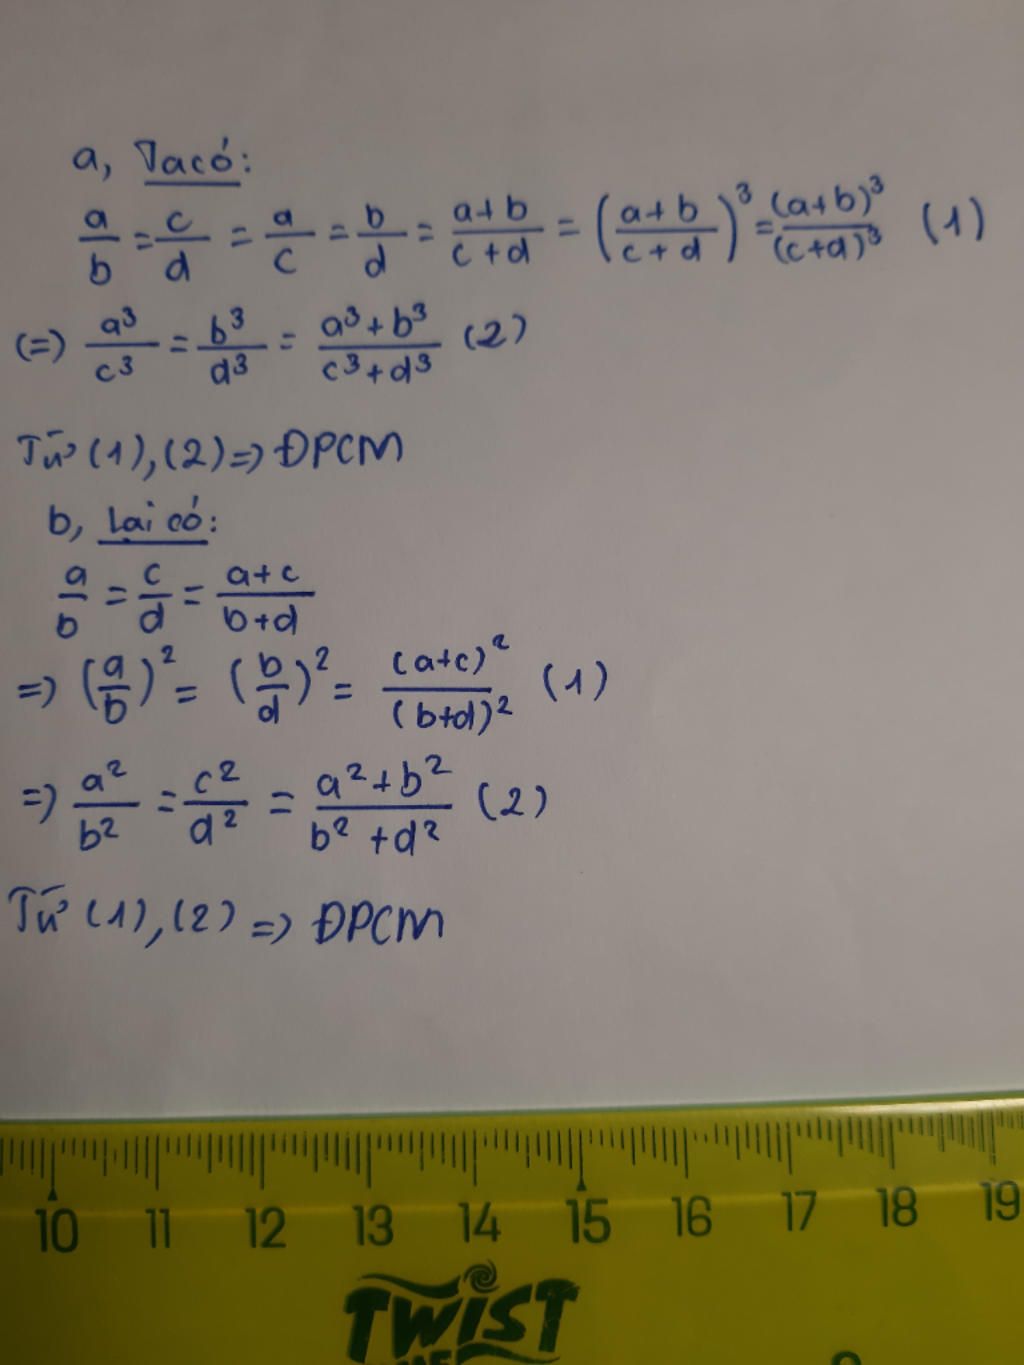 a, Ta có:
a/b = c/d = a/c = b/d = a+b/c+d = (a+b/c+d)³ = (a+b)³/(c+d)³ (1)
(=) a³/c³ = b³/d³ = a³+b³/c³+d³ (2)
Từ (1), (2) => ĐPCM
b, Lại có:
a/b = c/d = a+c/b+d
=> (a/b)² = (b/d)² = (a+c)²/(b+d)² (1)
=> a²/b² = c²/d² = a²+b²/b²+d² (2)
Từ (1), (2) => ĐPCM
10 11 12 13 14 15 16 17 18 19
TWIST